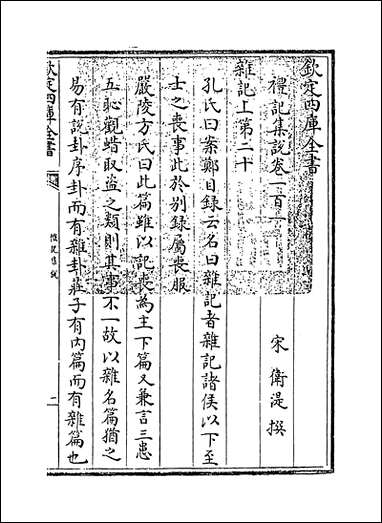 欽定四庫全書
禮記集說卷一百一
宋 衛湜 撰
雜記上第二十
孔氏曰案鄭目録云名曰雜記者雜記諸侯以下至
士之喪事此於别録屬喪服
嚴陵方氏曰此篇雖以記喪為主下篇又兼言三患
五恥觀蜡取盜之類則其事不一故以雜名篇猶之
易有說卦序卦而有雜卦莊子有内篇而有雜篇也
欽定四庫全書
禮記集說